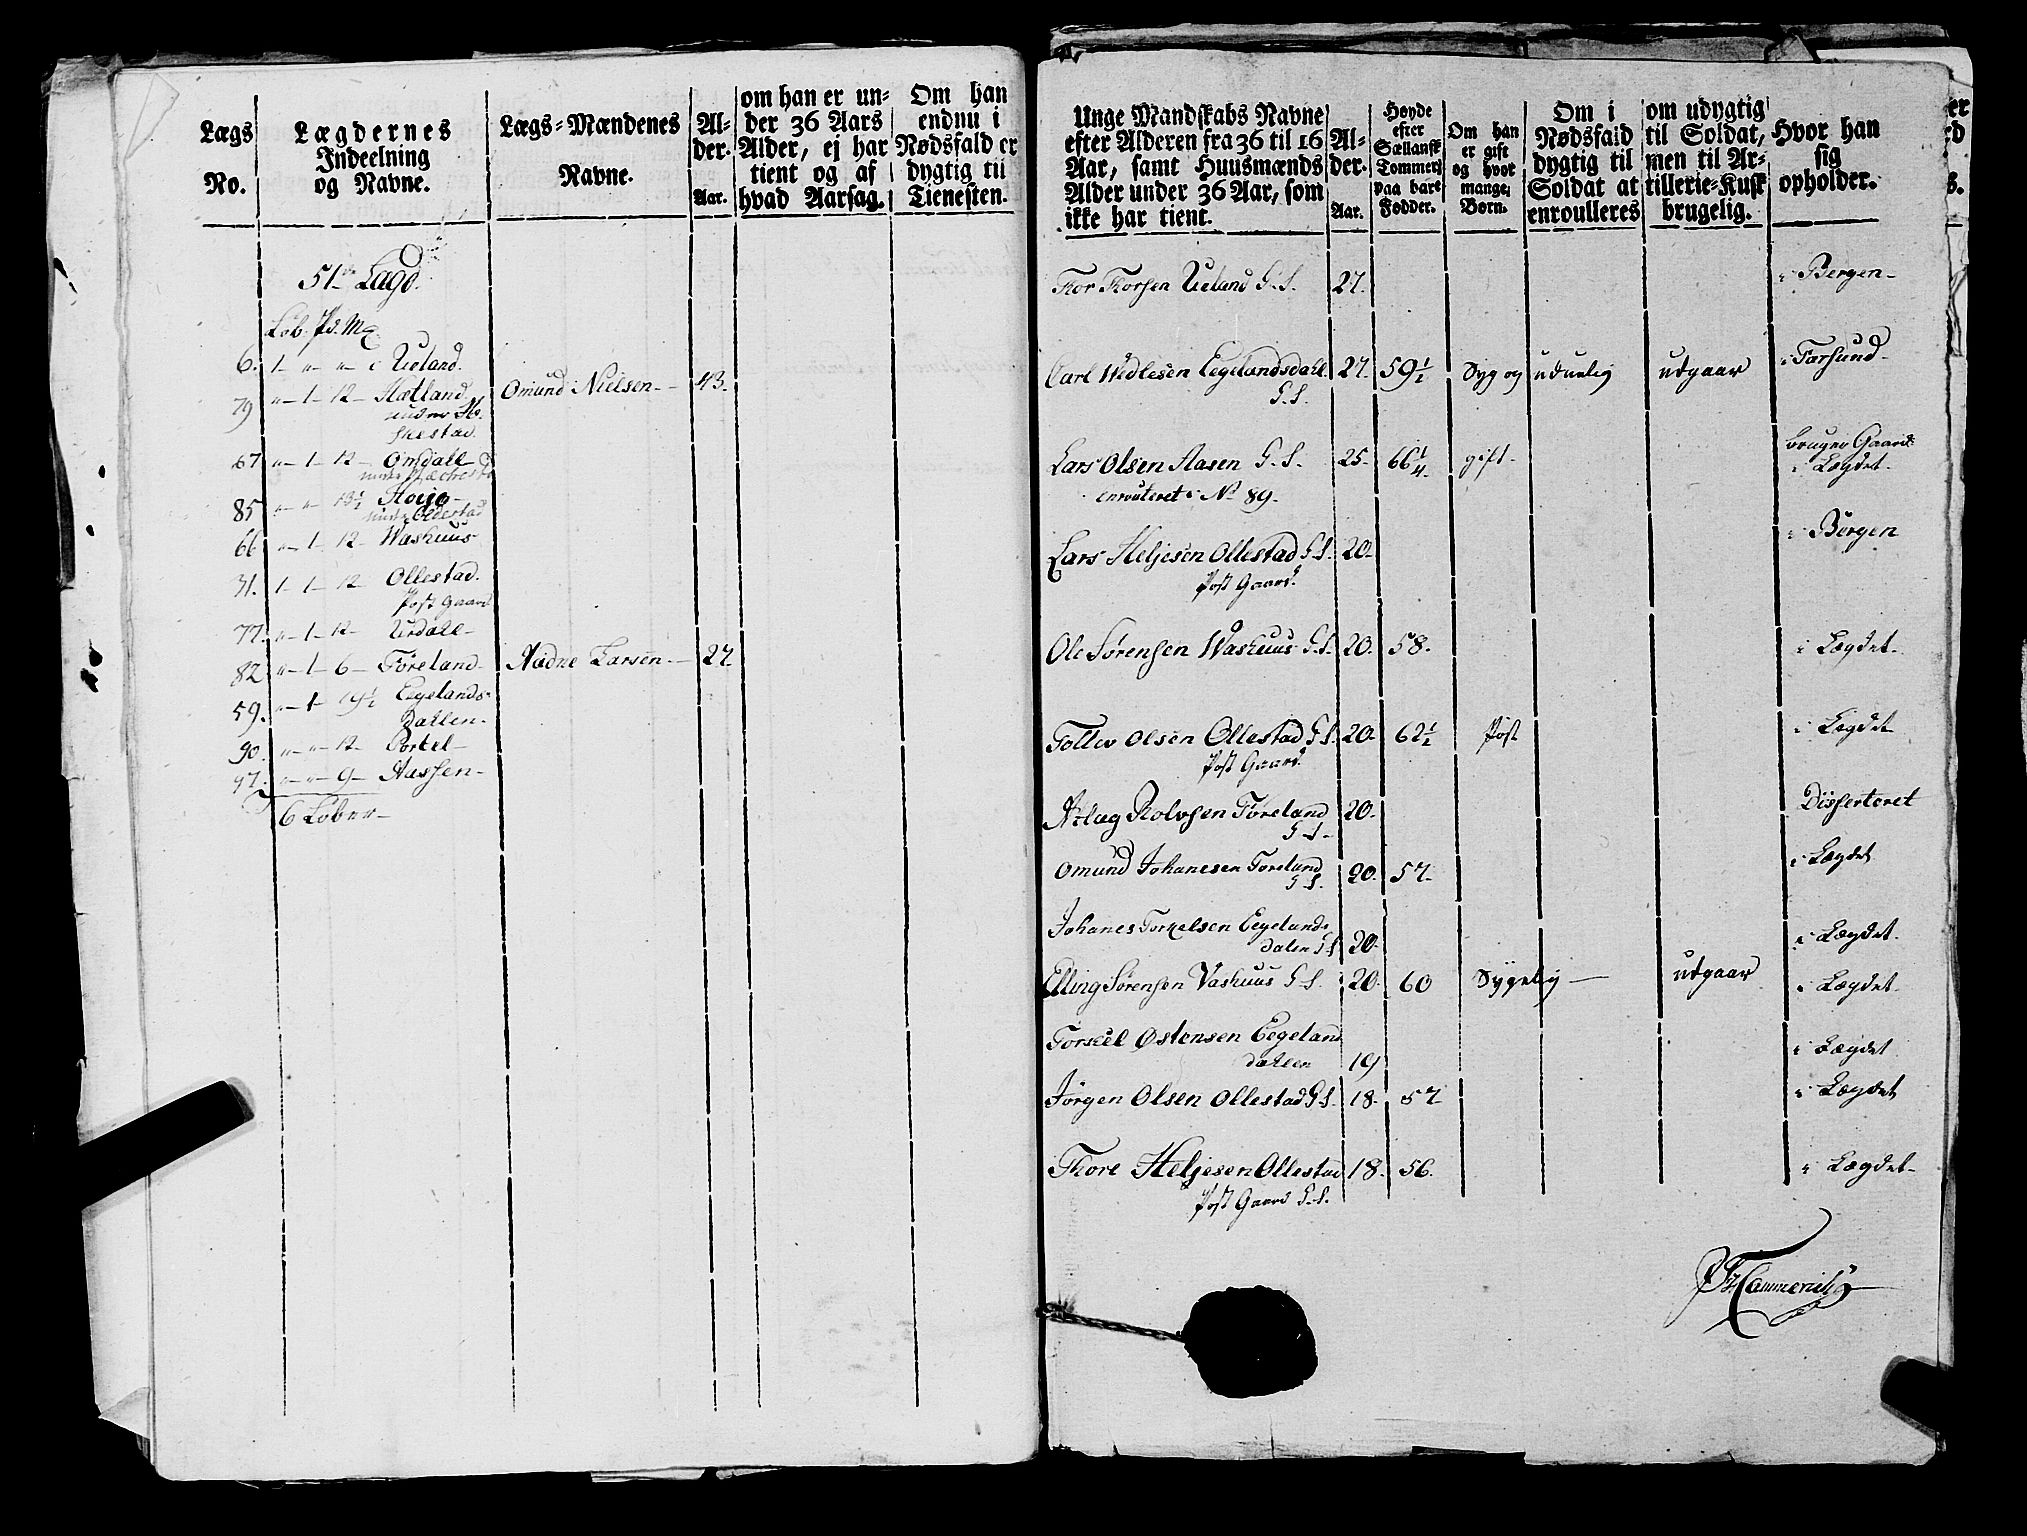 Lægs
No.
Lægdernes
Indeelning
og Navne.
Lægs-Mændenes
Navne.
Al-
der.
Aar.
om han er un-
der 36 Aars
Alder, ej har
tient og af
hvad Aarsag.
Om han
endnu i
Nødsfald er
dygtig til
Tienesten.
51de Lagd.
Løb. Pd. Mg
6. 1 - " - " - Ueland.
79 " - 1 - 12 - Hætland Omund Nielsen - 43.
under
skestad.
67 " - 1 - 12 - Omdall
under
85 " - " - 13½ Hovje -
under Oldestad
66 " - 1 - 12 - Washuus
31. 1 - 1 - 12 - Ollestad.
Post Gaard
77. " - 1 - 12 - Urdall -
82 " - 1 - 6 - Føreland. Aadne Larsen - 27
59. " - 1 - 19½ Eegelands-
dallen -
90. " - " - 12 - Portel -
97. " - " - 9 - Aassen -
6 Løber -
Unge Mandskabs Navne
efter Alderen fra 36 til 16
Aar, samt Huusmænds
Alder under 36 Aar, som
ikke har tient.
Al-
der.
Aar.
Høyde
efter
Sællansk
Tommer
paa bare
Fødder.
Om han
er gift
og hvor
mange
Børn.
Om i
Nødsfald
dygtig til
Soldat at
enroulleres
om udygtig
til Soldat,
men til Ar-
tillerie-Kusk
brugelig.
Hvor han
sig
opholder.
Tor Torsen Ueland G. S. 27. i Bergen -
Carl Wedlesen Eegelandsdahl 27. 59½ Syg og uduelig udgaar i Farsund -
G. S.
Lars Olsen Aasen G. S. 25. 66¼ gift - bruger Gaard
i Lægdet.
enrouleret i No 89.
Lars Heljesen Ollestad G S. 20. i Bergen
Post Gaard.
Ole Sørensen Washuus G S. 20. 58. i Lægdet.
Tollev Olsen Ollestad G S. 20. 62½ Post i Legdet
Post Gaard.
Atlag Rolvsen Føreland 20. Dissertoret
G S -
Omund Johanesen Foreland 20. 57. i Lægdet
G S.
Johanes Torkelsen Eegelands
dalen G S 20. i Lægdet.
Elling Sørensen Vashuus G S. 20. 60 Sygelig - udgaar i Lægdet.
Torkel Østensen Eegeland
dallen 19 i Lægdet
Jørgen Olsen Ollestad G S. 18. 57 i Lægdet
Thore Heljesen Ollestad 18. 56. i Lægdet -
Post Gaard G. S.